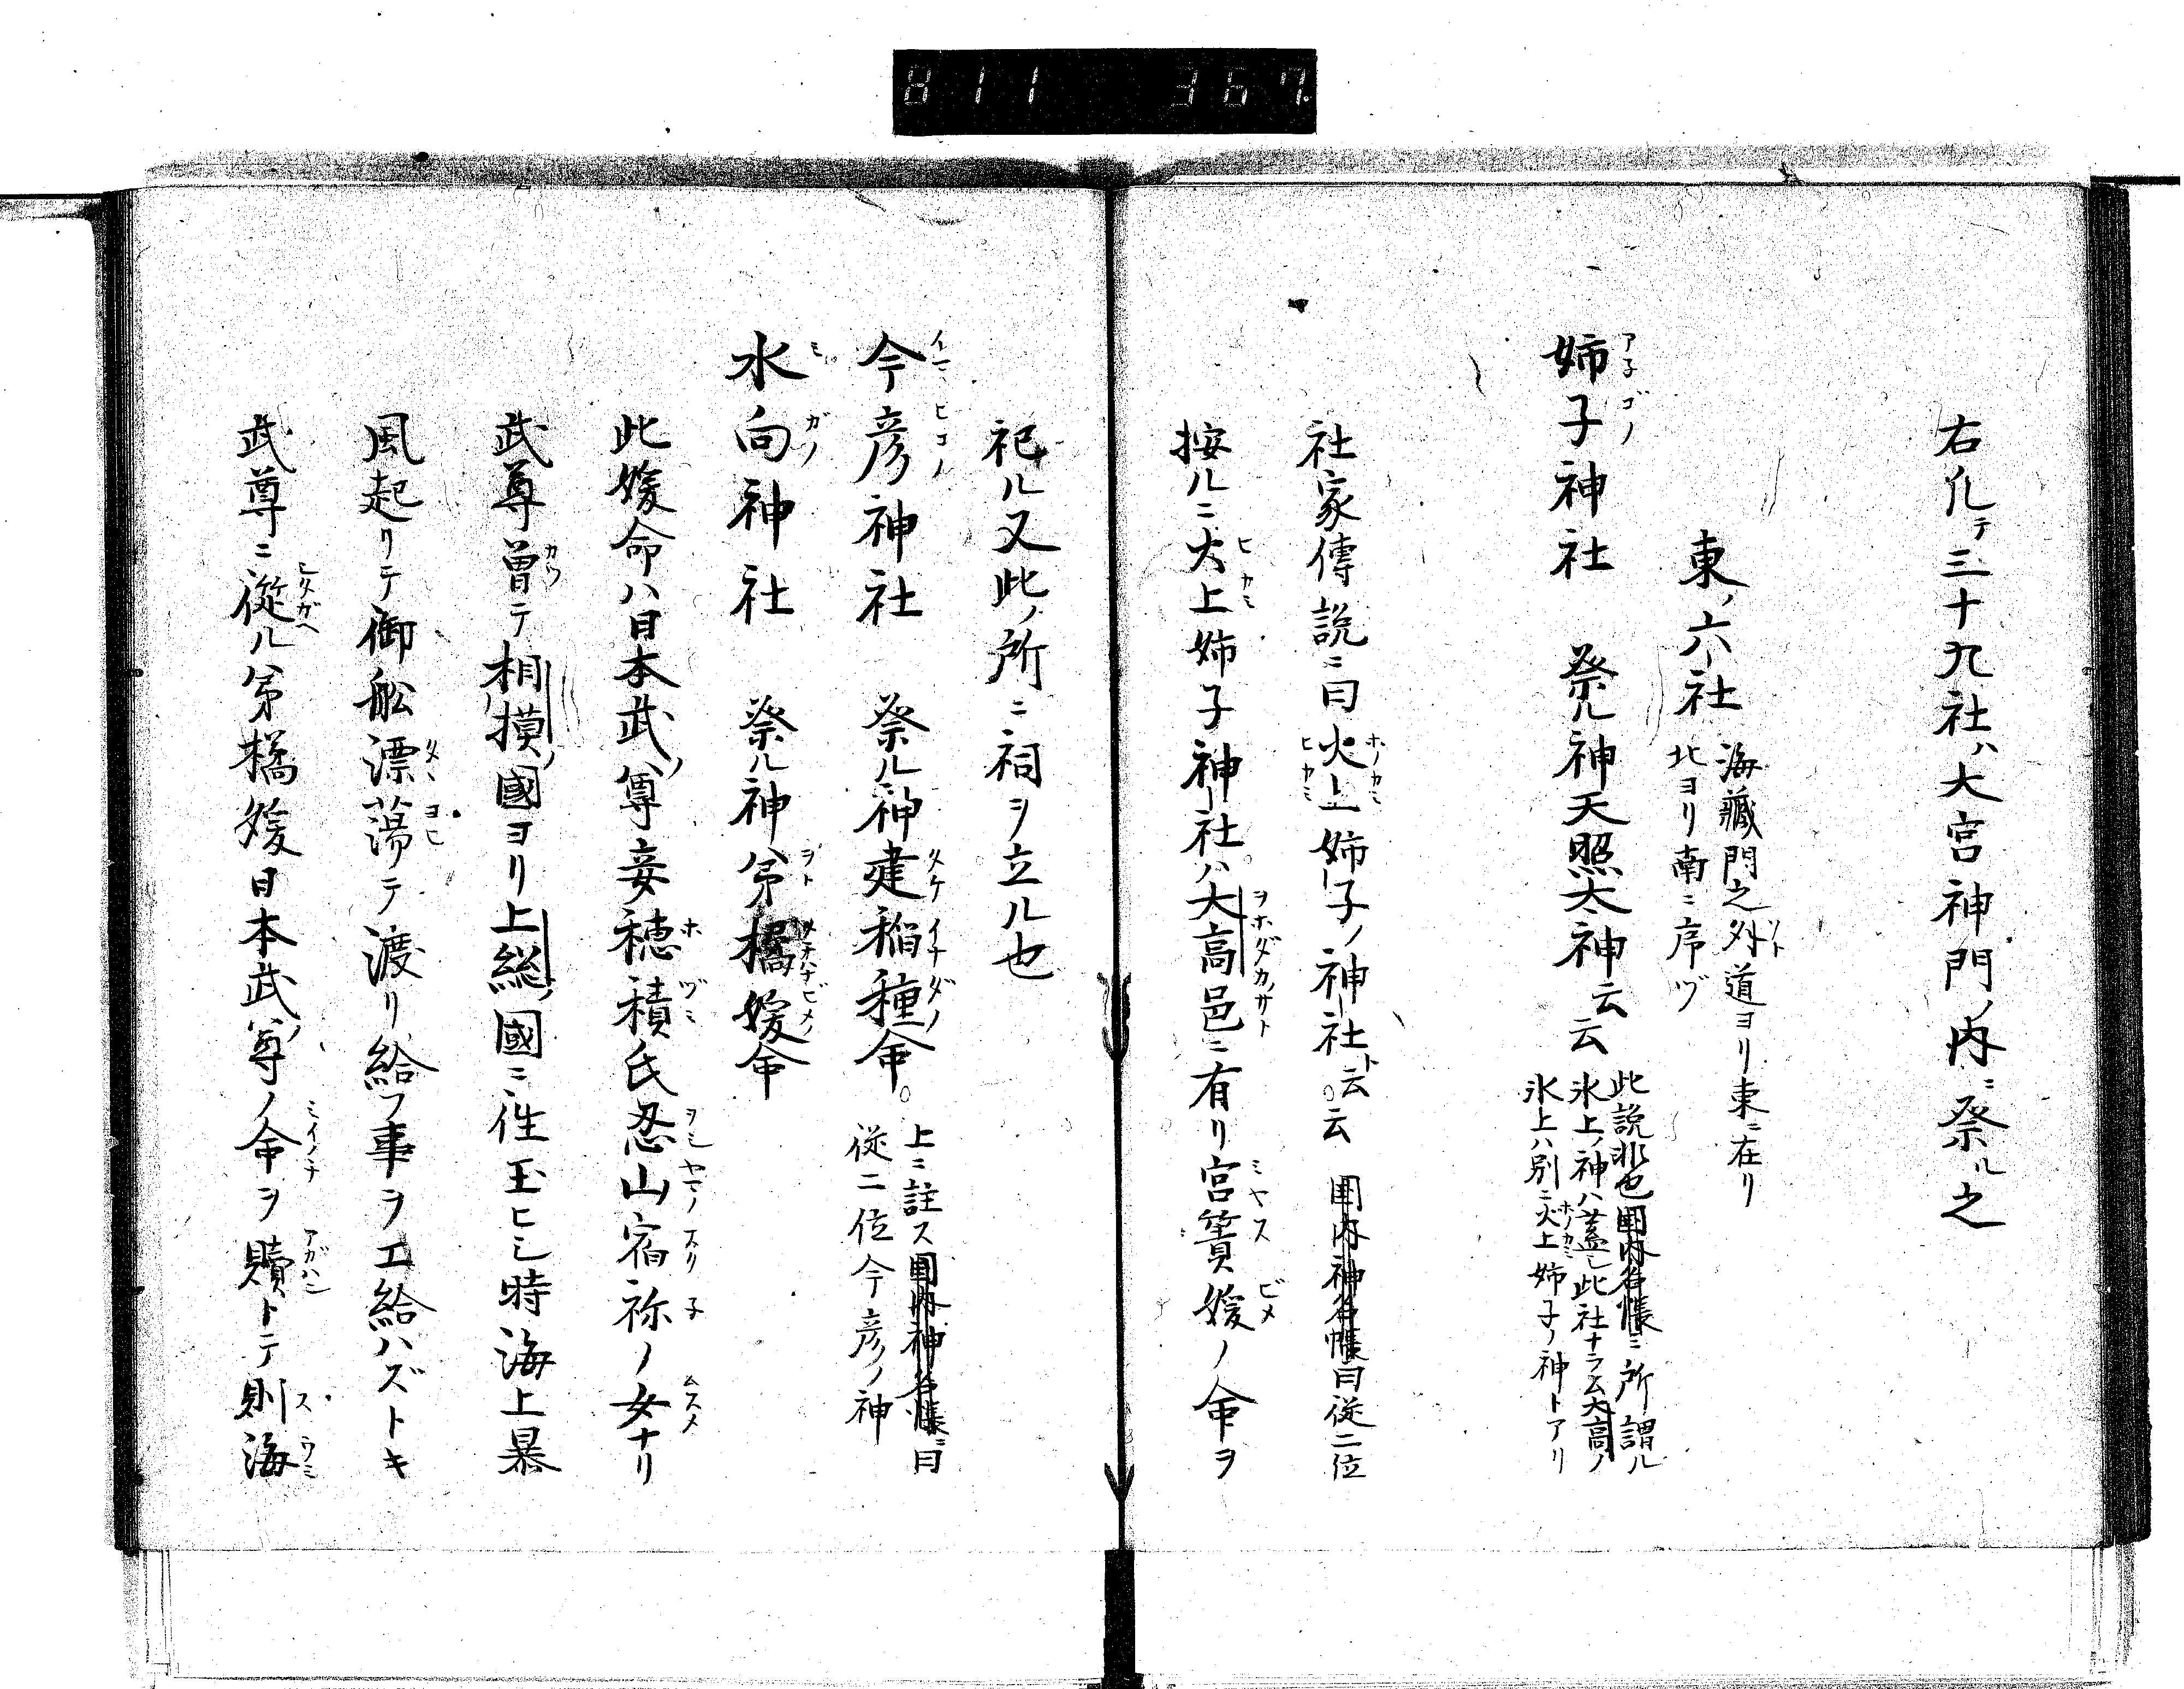 811 367
右凢テ三十九社ハ大宮神門ノ内ニ祭ル之
東ノ六社
海藏門之外道ヨリ東ニ在リ
北ヨリ南ニ序ヅ
姉子神社 祭ル神天照太神云云
此説非也国内名帳ニ所謂ル
氷上ノ神ハ蓋シ此社ナラン大高ノ
氷上ハ別ニ火上姉子ノ神トアリ
社家傳説ニ曰火上姉子ノ神社ト云云 国内神名帳曰従二位
按ルニ火上姉子神社ハ大高邑ニ有リ宮簀媛ノ命ヲ
祀ル又此ノ所ニ祠ヲ立ル也
今彦神社 祭ル神建稲種命
上ニ註ス国内神名帳ニ曰
従二位今彦ノ神
水向神社 祭ル神弟橘媛命
此媛命ハ日本武ノ尊妾穂積氏忍山宿祢ノ女ナリ
武尊曽テ相摸ノ國ヨリ上総ノ國ニ往玉ヒシ時海上暴
風起リテ御舩漂蕩テ渡リ給フ事ヲエ給ハズトキ
武尊ニ從ル弟橘媛日本武ノ尊ノ命ヲ贖トテ則海